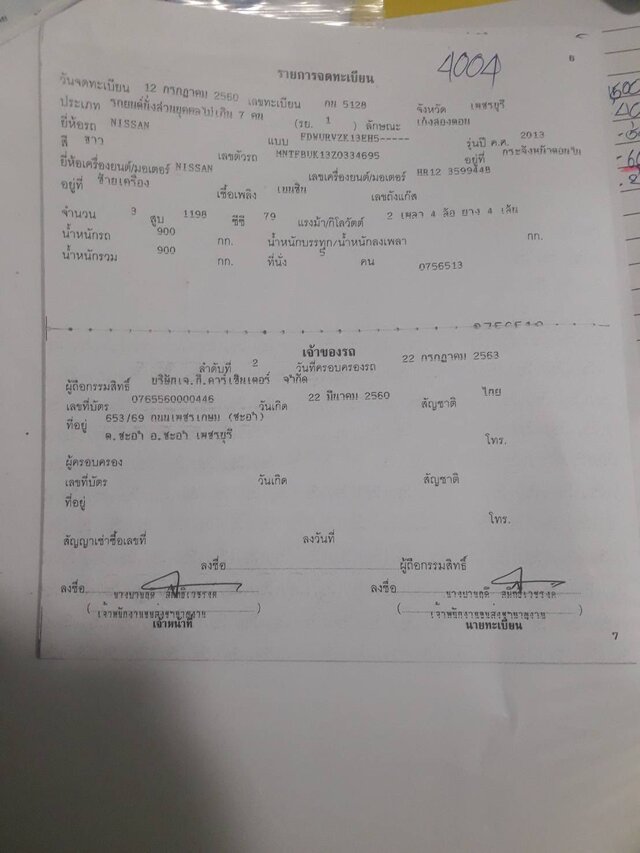 6
รายการจดทะเบียน
4004
วันจดทะเบียน 12 กรกฎาคม 2560 เลขทะเบียน กน 5128 จังหวัด เพชรบุรี
ประเภท รถยนต์นั่งส่วนบุคคลไม่เกิน 7 คน (รย. 1 ) ลักษณะ เก๋งสองตอน
ยี่ห้อรถ NISSAN แบบ FDWURVZK13EH5----- รุ่นปี ค.ศ. 2013
สี ขาว เลขตัวรถ MNTFBUK13Z0334695 อยู่ที่
ยี่ห้อเครื่องยนต์/มอเตอร์ NISSAN เลขเครื่องยนต์/มอเตอร์ HR12 3599448
อยู่ที่ ซ้ายเครื่อง เชื้อเพลิง เบนซิน เลขถังแก๊ส
จำนวน 3 สูบ 1198 ซีซี 79 แรงม้า/กิโลวัตต์ 2 เพลา 4 ล้อ ยาง 4 เส้น
น้ำหนักรถ 900 กก. น้ำหนักบรรทุก/น้ำหนักลงเพลา กก.
น้ำหนักรวม 900 กก. ที่นั่ง 5 คน 0756513
เจ้าของรถ
ลำดับที่ 2 วันที่ครอบครองรถ 22 กรกฎาคม 2563
ผู้ถือกรรมสิทธิ์ บริษัทเจ.ที.คาร์เซ็นเตอร์ จำกัด
เลขที่บัตร 0765560000446 วันเกิด 22 มีนาคม 2560 สัญชาติ ไทย
ที่อยู่ 653/69 ถนนเพชรเกษม (ชะอำ)
ต.ชะอำ อ.ชะอำ เพชรบุรี โทร.
ผู้ครอบครอง
เลขที่บัตร วันเกิด สัญชาติ
ที่อยู่
โทร.
สัญญาเช่าซื้อเลขที่ ลงวันที่
ลงชื่อ ผู้ถือกรรมสิทธิ์
ลงชื่อ ลงชื่อ
(เจ้าพนักงานขนส่งชำนาญงาน) (เจ้าพนักงานขนส่งชำนาญงาน)
เจ้าหน้าที่ นายทะเบียน
7